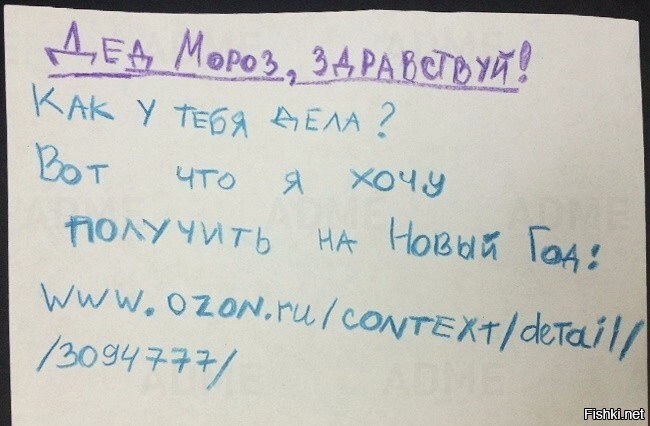 Дед Мороз, здравствуй!
Как у тебя дела?
Вот что я хочу
получить на Новый Год:
www.ozon.ru/context/detail/
/3094777/
ADME ADME ADME
ADME ADME
Fishki.net